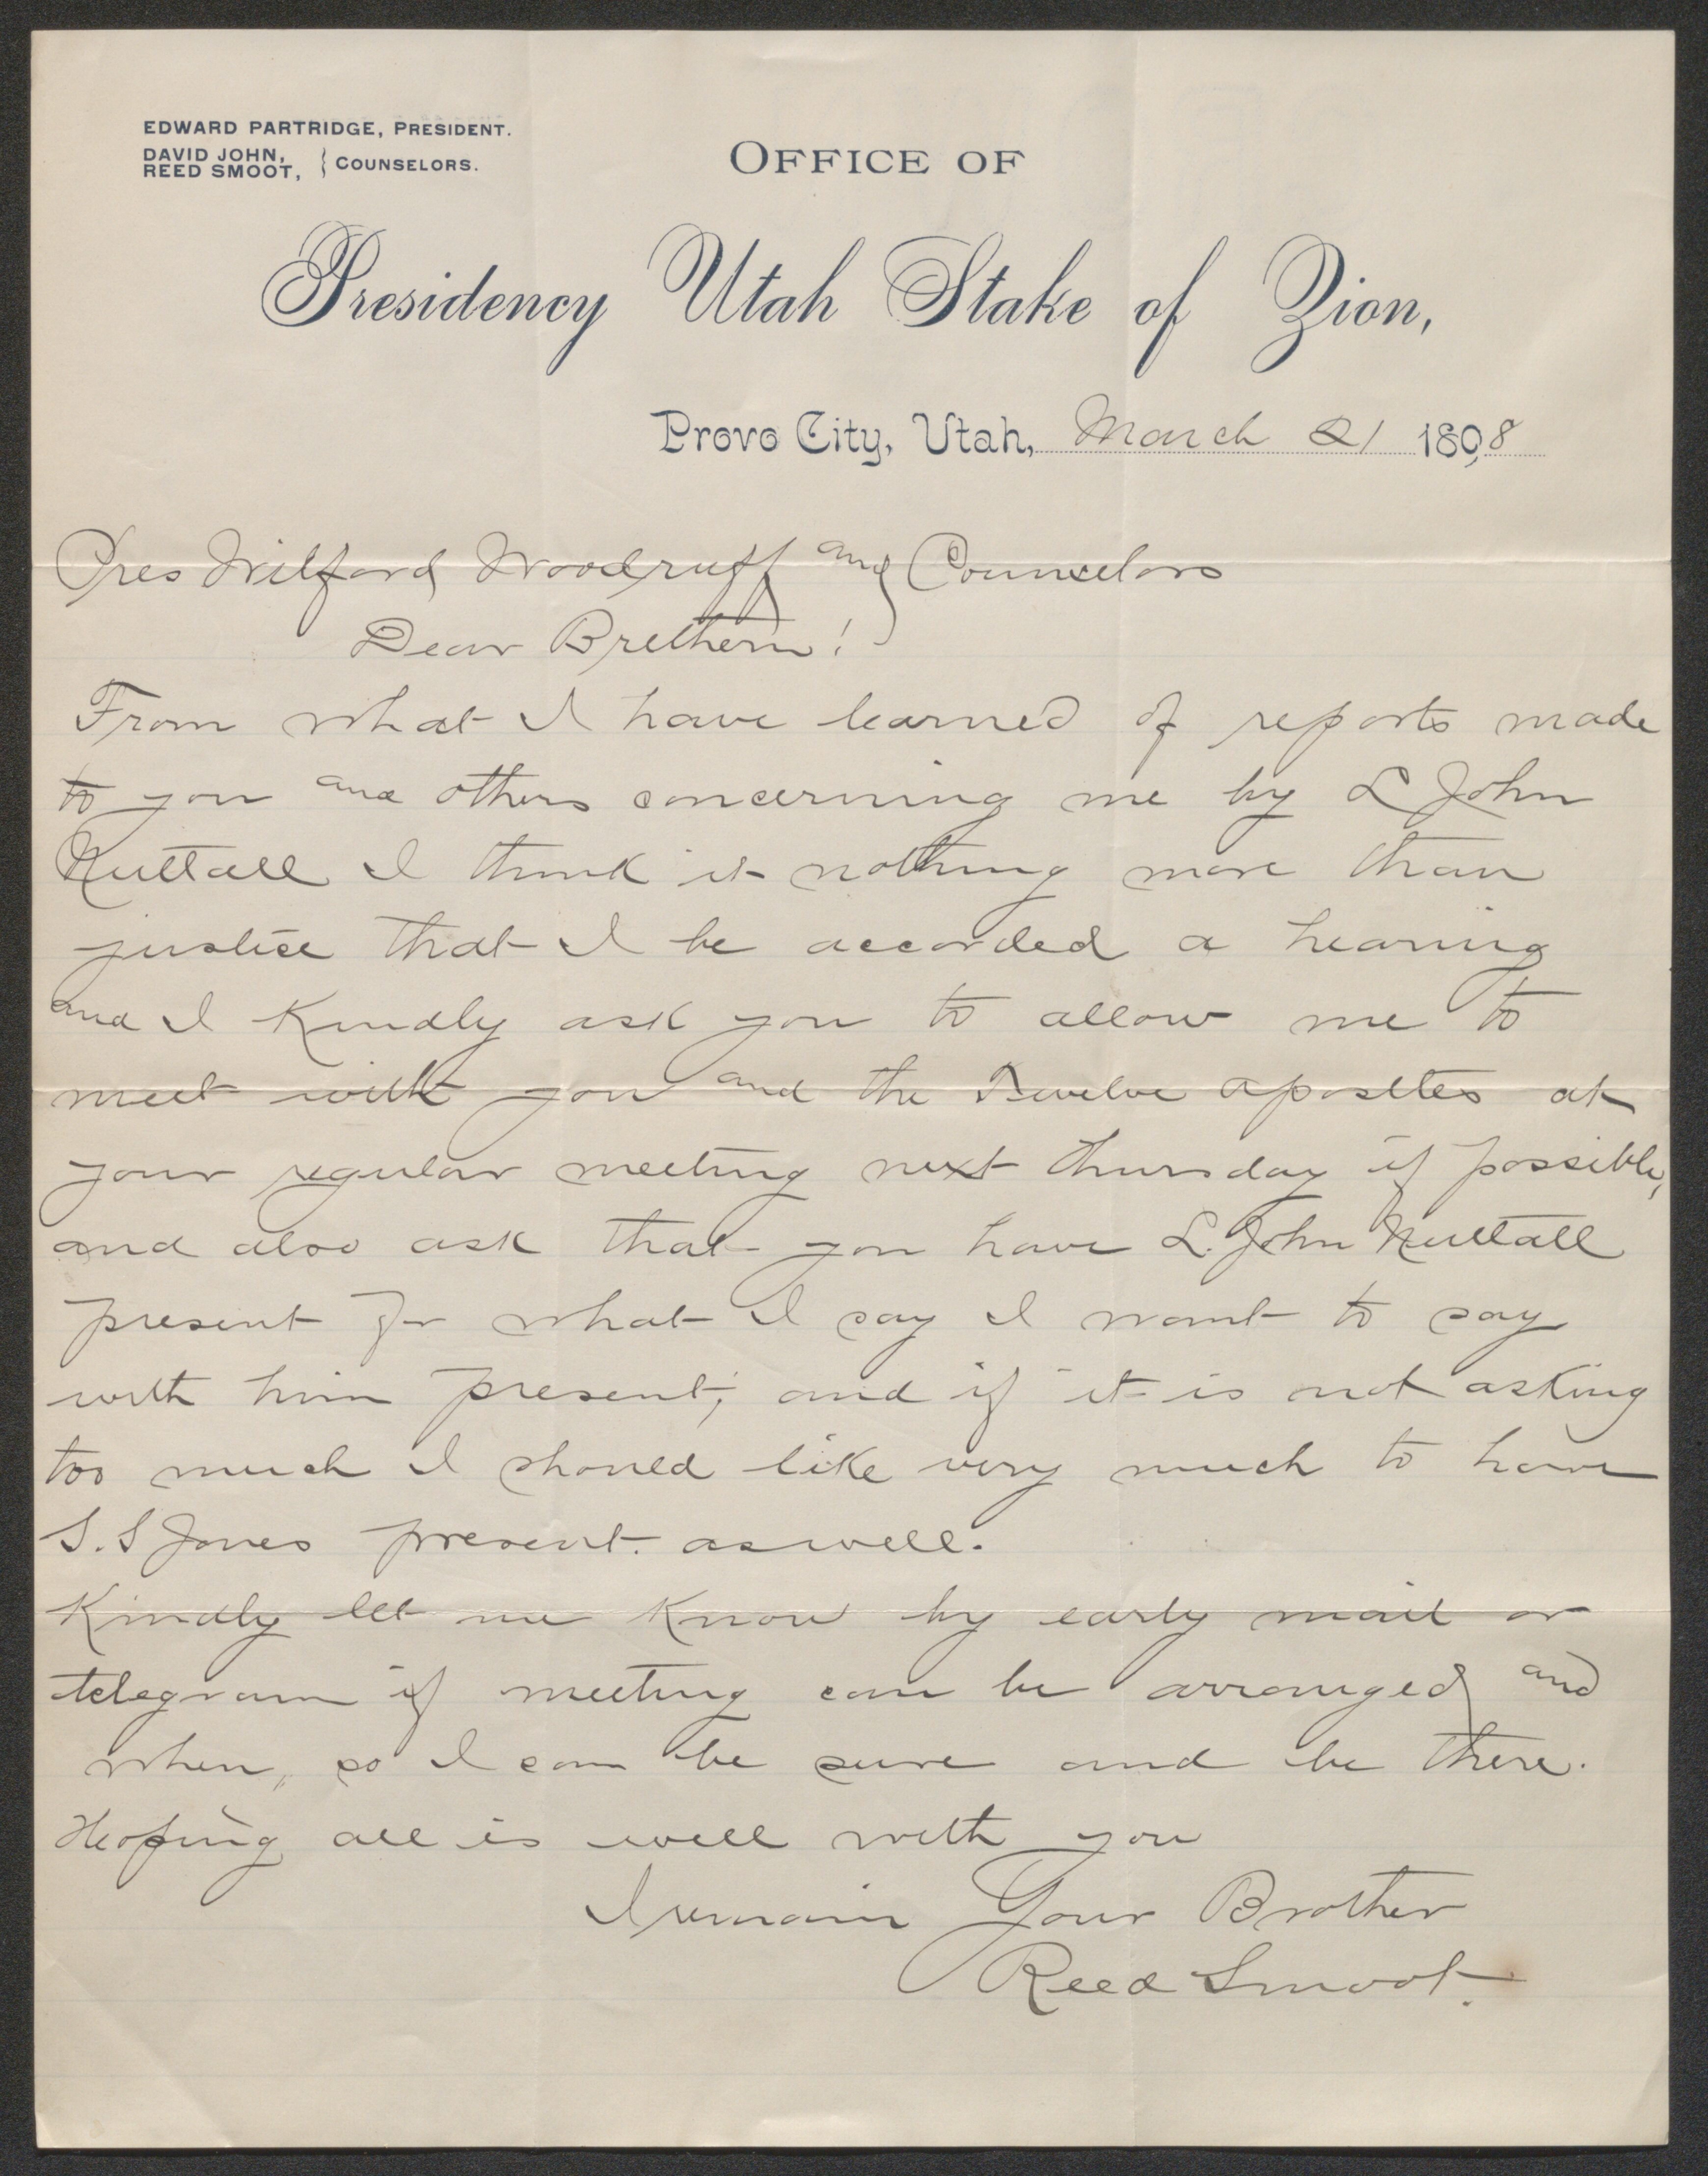 EDWARD PARTRIDGE, PRESIDENT.
DAVID JOHN,
REED SMOOT, } COUNSELORS.
OFFICE OF
Presidency Utah Stake of Zion,
Provo City, Utah, March 21 1898
Pres Wilford Woodruff and Counselors
Dear Brethern!
From what I have learned of reports made
to you and others concerning me by L John
Nuttall I think it nothing more than
justice that I be accorded a hearing
and I Kindly ask you to allow me to
meet with you and the Twelve aposltes at
your regular meeting next Thursday if possible,
and also ask that you have L. John Nuttall
present for what I say I want to say
with him present; and if it is not asking
too much I should like very much to have
S. S Jones present as well.
Kindly let me Know by early mail or
telegram if meeting can be arranged and
when, so I can be sure and be there.
Hoping all is well with you
I remain Your Brother
Reed Smoot.